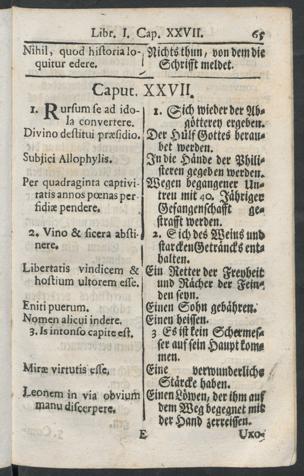 Libr. I. Cap. XXVII. 65
Nihil, quod historia lo-
quitur edere.
Nichts thun, von dem die
Schrifft meldet.
Caput. XXVII.
1. Rursum se ad ido-
la convertere.
1. Sich wieder der Ab-
götterey ergeben.
Divino destitui præsidio.
Der Hülf Gottes berau-
bet werden.
Subjici Allophylis.
In die Hände der Phili-
steren gegeben werden.
Per quadraginta captivi-
tatis annos pœnas per-
fidiæ pendere.
Wegen begangener Un-
treu mit 40. Jähriger
Gefangenschafft ge-
strafft werden.
2. Vino & sicera absti-
nere.
2. Sich des Weins und
starcken Geträncks ent-
halten.
Libertatis vindicem &
hostium ultorem esse.
Ein Retter der Freyheit
und Rächer der Fein-
den seyn.
Eniti puerum.
Einen Sohn gebähren.
Nomen alicui indere.
Einen heissen.
3. Is intonso capite est.
3 Es ist kein Schermes-
ser auf sein Haupt kom-
men.
Miræ virtutis esse,
Eine verwunderliche
Stärcke haben.
Leonem in via obvium
manu discerpere.
Einen Löwen, der ihm auf
dem Weg begegnet mit
der Hand zerreissen.
E
Uxo-